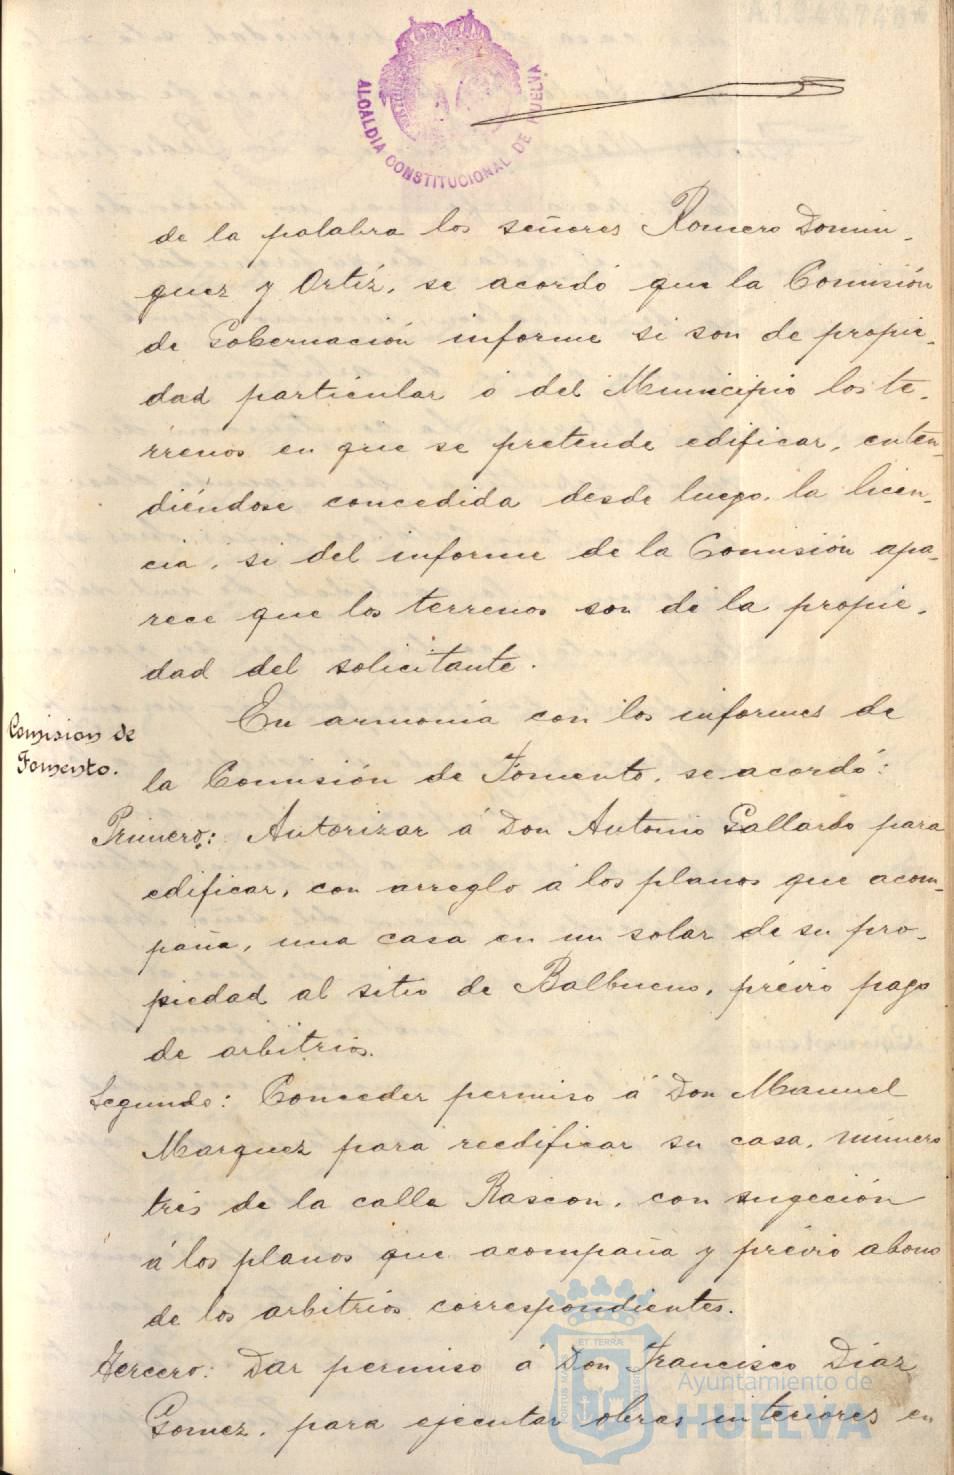 ALCALDIA CONSTITUCIONAL DE HUELVA
de la palabra los señores Romero Domin-
guez y Ortíz, se acordó que la Comisión
de Gobernación informe si son de propie-
dad particular ó del Municipio los te-
rrenos en que se pretende edificar, enten-
diéndose concedida desde luego, la licen-
cia, si del informe de la Comisión apa-
rece que los terrenos son de la propie-
dad del solicitante.
Comision de
Fomento.
En armonía con los informes de
la Comisión de Fomento, se acordó:
Primero: Autorizar á Don Antonio Gallardo para
edificar, con arreglo á los planos que acom-
paña, una casa en un solar de su pro-
piedad al sitio de Balbueno, prévio pago
de arbitrios.
Segundo: Conceder permiso á Don Manuel
Marquez para reedificar su casa, número
tres de la calle Rascon, con sugeción
á los planos que acompaña y prévio abono
de los arbitrios correspondientes.
Tercero: Dar permiso á Don Francisco Díaz
Gomez, para ejecutar obras interiores en
Ayuntamiento de
HUELVA